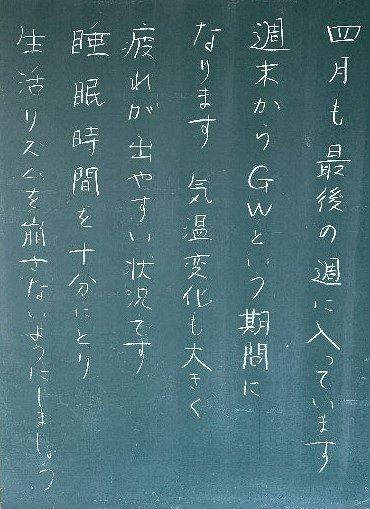 四月も最後の週に入っています
週末からGWという期間に
なります 気温変化も大きく
疲れが出やすい状況です
睡眠時間を十分にとり
生活リズムを崩さないようにしましょう